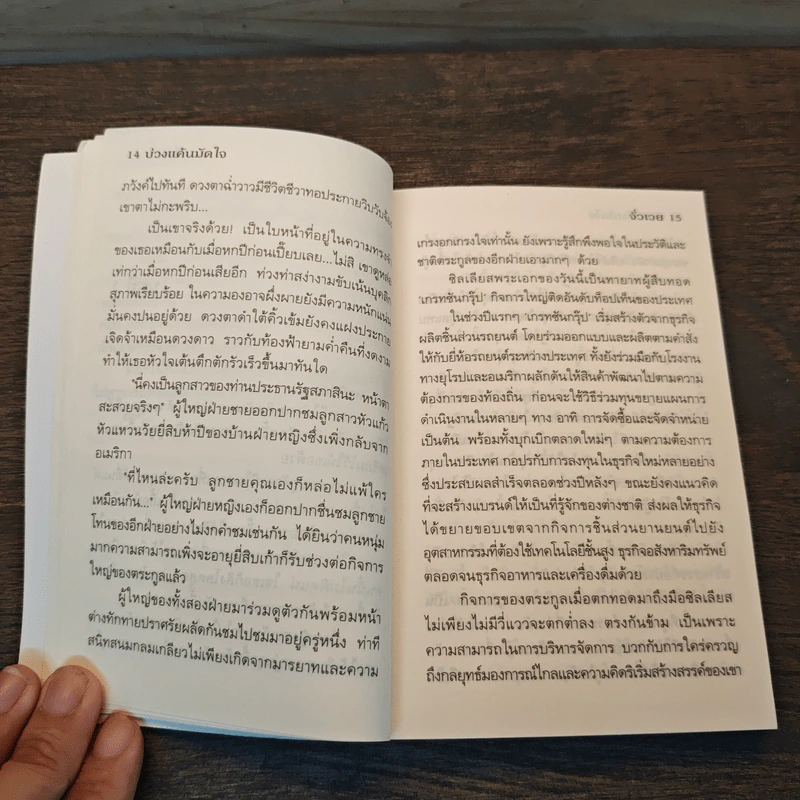 14 บ่วงแค้นมัดใจ
ภวังค์ไปทันที ดวงตาฉ่ำวาวมีชีวิตชีวาทอประกายวิบวับจ้อง
เขาตาไม่กะพริบ...
เป็นเขาจริงด้วย! เป็นใบหน้าที่อยู่ในความทรงจำ
ของเธอเหมือนกับเมื่อหกปีก่อนเปี๊ยบเลย...ไม่สิ เขาดูหล่อ
เท่กว่าเมื่อหกปีก่อนเสียอีก ท่วงท่าสง่างามขับเน้นบุคลิก
สุภาพเรียบร้อย ในความองอาจผึ่งผายยังมีความหนักแน่น
มั่นคงปนอยู่ด้วย ดวงตาดำใต้คิ้วเข้มยังคงแฝงประกาย
เจิดจ้าเหมือนดวงดาว ราวกับท้องฟ้ายามค่ำคืนที่งดงาม
ทำให้เธอหัวใจเต้นตึกตักรัวเร็วขึ้นมาทันใด
"นี่คงเป็นลูกสาวของท่านประธานรัฐสภาสินะ หน้าตา
สะสวยจริงๆ" ผู้ใหญ่ฝ่ายชายออกปากชมลูกสาวหัวแก้ว
หัวแหวนวัยยี่สิบห้าปีของบ้านฝ่ายหญิงซึ่งเพิ่งกลับจาก
อเมริกา
"ที่ไหนล่ะครับ ลูกชายคุณเองก็หล่อไม่แพ้ใคร
เหมือนกัน..." ผู้ใหญ่ฝ่ายหญิงเองก็ออกปากชื่นชมลูกชาย
โทนของอีกฝ่ายอย่างไม่งกคำชมเช่นกัน ได้ยินว่าคนหนุ่ม
มากความสามารถเพิ่งจะอายุยี่สิบเก้าก็รับช่วงต่อกิจการ
ใหญ่ของตระกูลแล้ว
ผู้ใหญ่ของทั้งสองฝ่ายมาร่วมดูตัวกันพร้อมหน้า
ต่างทักทายปราศรัยผลัดกันชมไปชมมาอยู่ครู่หนึ่ง ท่าที
สนิทสนมกลมเกลียวไม่เพียงเกิดจากมารยาทและความ
จิ่วเวย 15
เกรงอกเกรงใจเท่านั้น ยังเพราะรู้สึกพึงพอใจในประวัติและ
ชาติตระกูลของอีกฝ่ายเอามากๆ ด้วย
ซิลเลียสพระเอกของวันนี้เป็นทายาทผู้สืบทอด
'เกรทซันกรุ๊ป' กิจการใหญ่ติดอันดับท็อปเท็นของประเทศ
ในช่วงปีแรกๆ 'เกรทซันกรุ๊ป' เริ่มสร้างตัวจากธุรกิจ
ผลิตชิ้นส่วนรถยนต์ โดยร่วมออกแบบและผลิตตามคำสั่ง
ให้กับยี่ห้อรถยนต์ระหว่างประเทศ ทั้งยังร่วมมือกับโรงงาน
ทางยุโรปและอเมริกาผลักดันให้สินค้าพัฒนาไปตามความ
ต้องการของท้องถิ่น ก่อนจะใช้วิธีร่วมทุนขยายแผนการ
ดำเนินงานในหลายๆ ทาง อาทิ การจัดซื้อและจัดจำหน่าย
เป็นต้น พร้อมทั้งบุกเบิกตลาดใหม่ๆ ตามความต้องการ
ภายในประเทศ กอปรกับการลงทุนในธุรกิจใหม่หลายอย่าง
ซึ่งประสบผลสำเร็จตลอดช่วงปีหลังๆ ขณะยังคงแนวคิด
ที่จะสร้างแบรนด์ให้เป็นที่รู้จักของต่างชาติ ส่งผลให้ธุรกิจ
ได้ขยายขอบเขตจากกิจการชิ้นส่วนยานยนต์ไปยัง
อุตสาหกรรมที่ต้องใช้เทคโนโลยีชั้นสูง ธุรกิจอสังหาริมทรัพย์
ตลอดจนธุรกิจอาหารและเครื่องดื่มด้วย
กิจการของตระกูลเมื่อตกทอดมาถึงมือซิลเลียส
ไม่เพียงไม่มีวี่แววจะตกต่ำลง ตรงกันข้าม เป็นเพราะ
ความสามารถในการบริหารจัดการ บวกกับการใคร่ครวญ
ถึงกลยุทธ์มองการณ์ไกลและความคิดริเริ่มสร้างสรรค์ของเขา